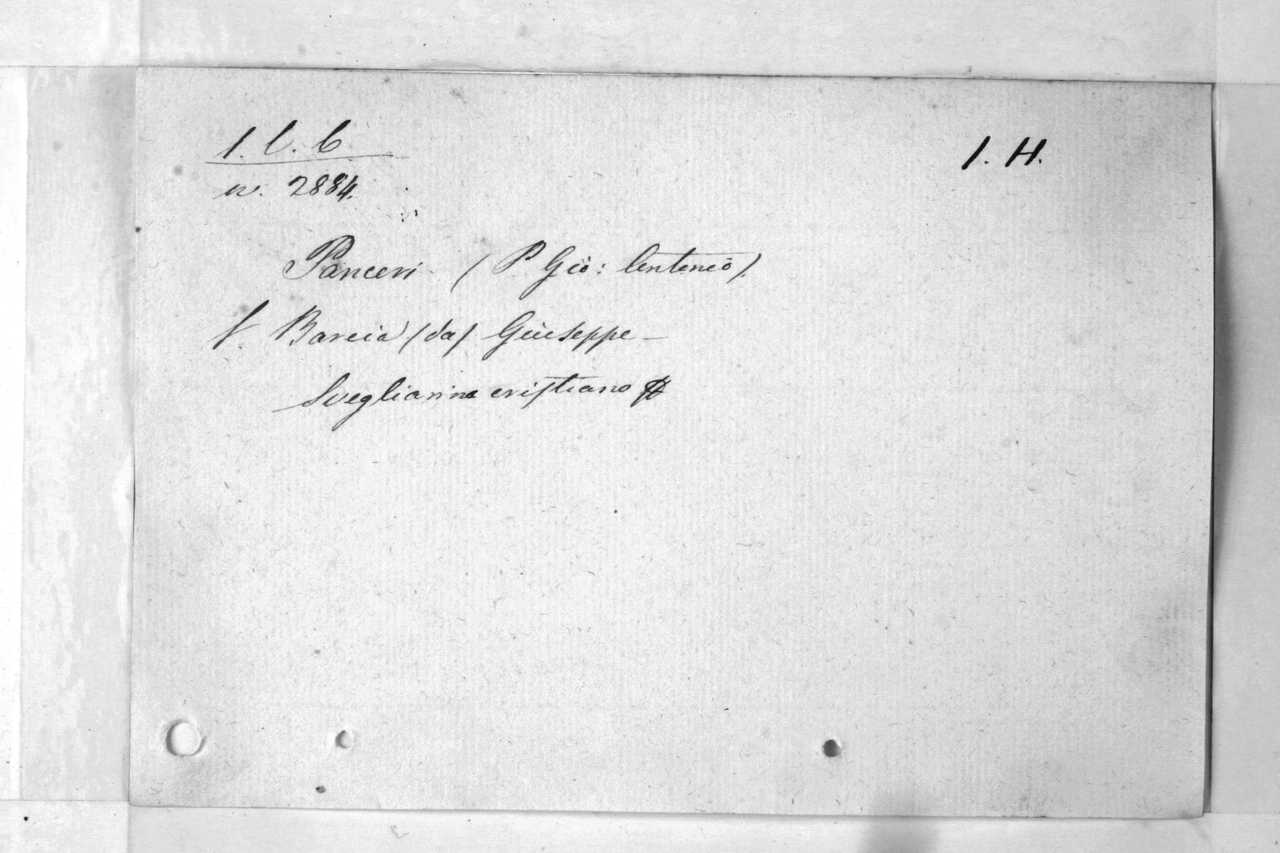 1. C. C
1. H.
n. 2884.
Panceri (P Gio: Centenio).
f. Barcia (da) Giuseppe —
Svegliarine cristiano